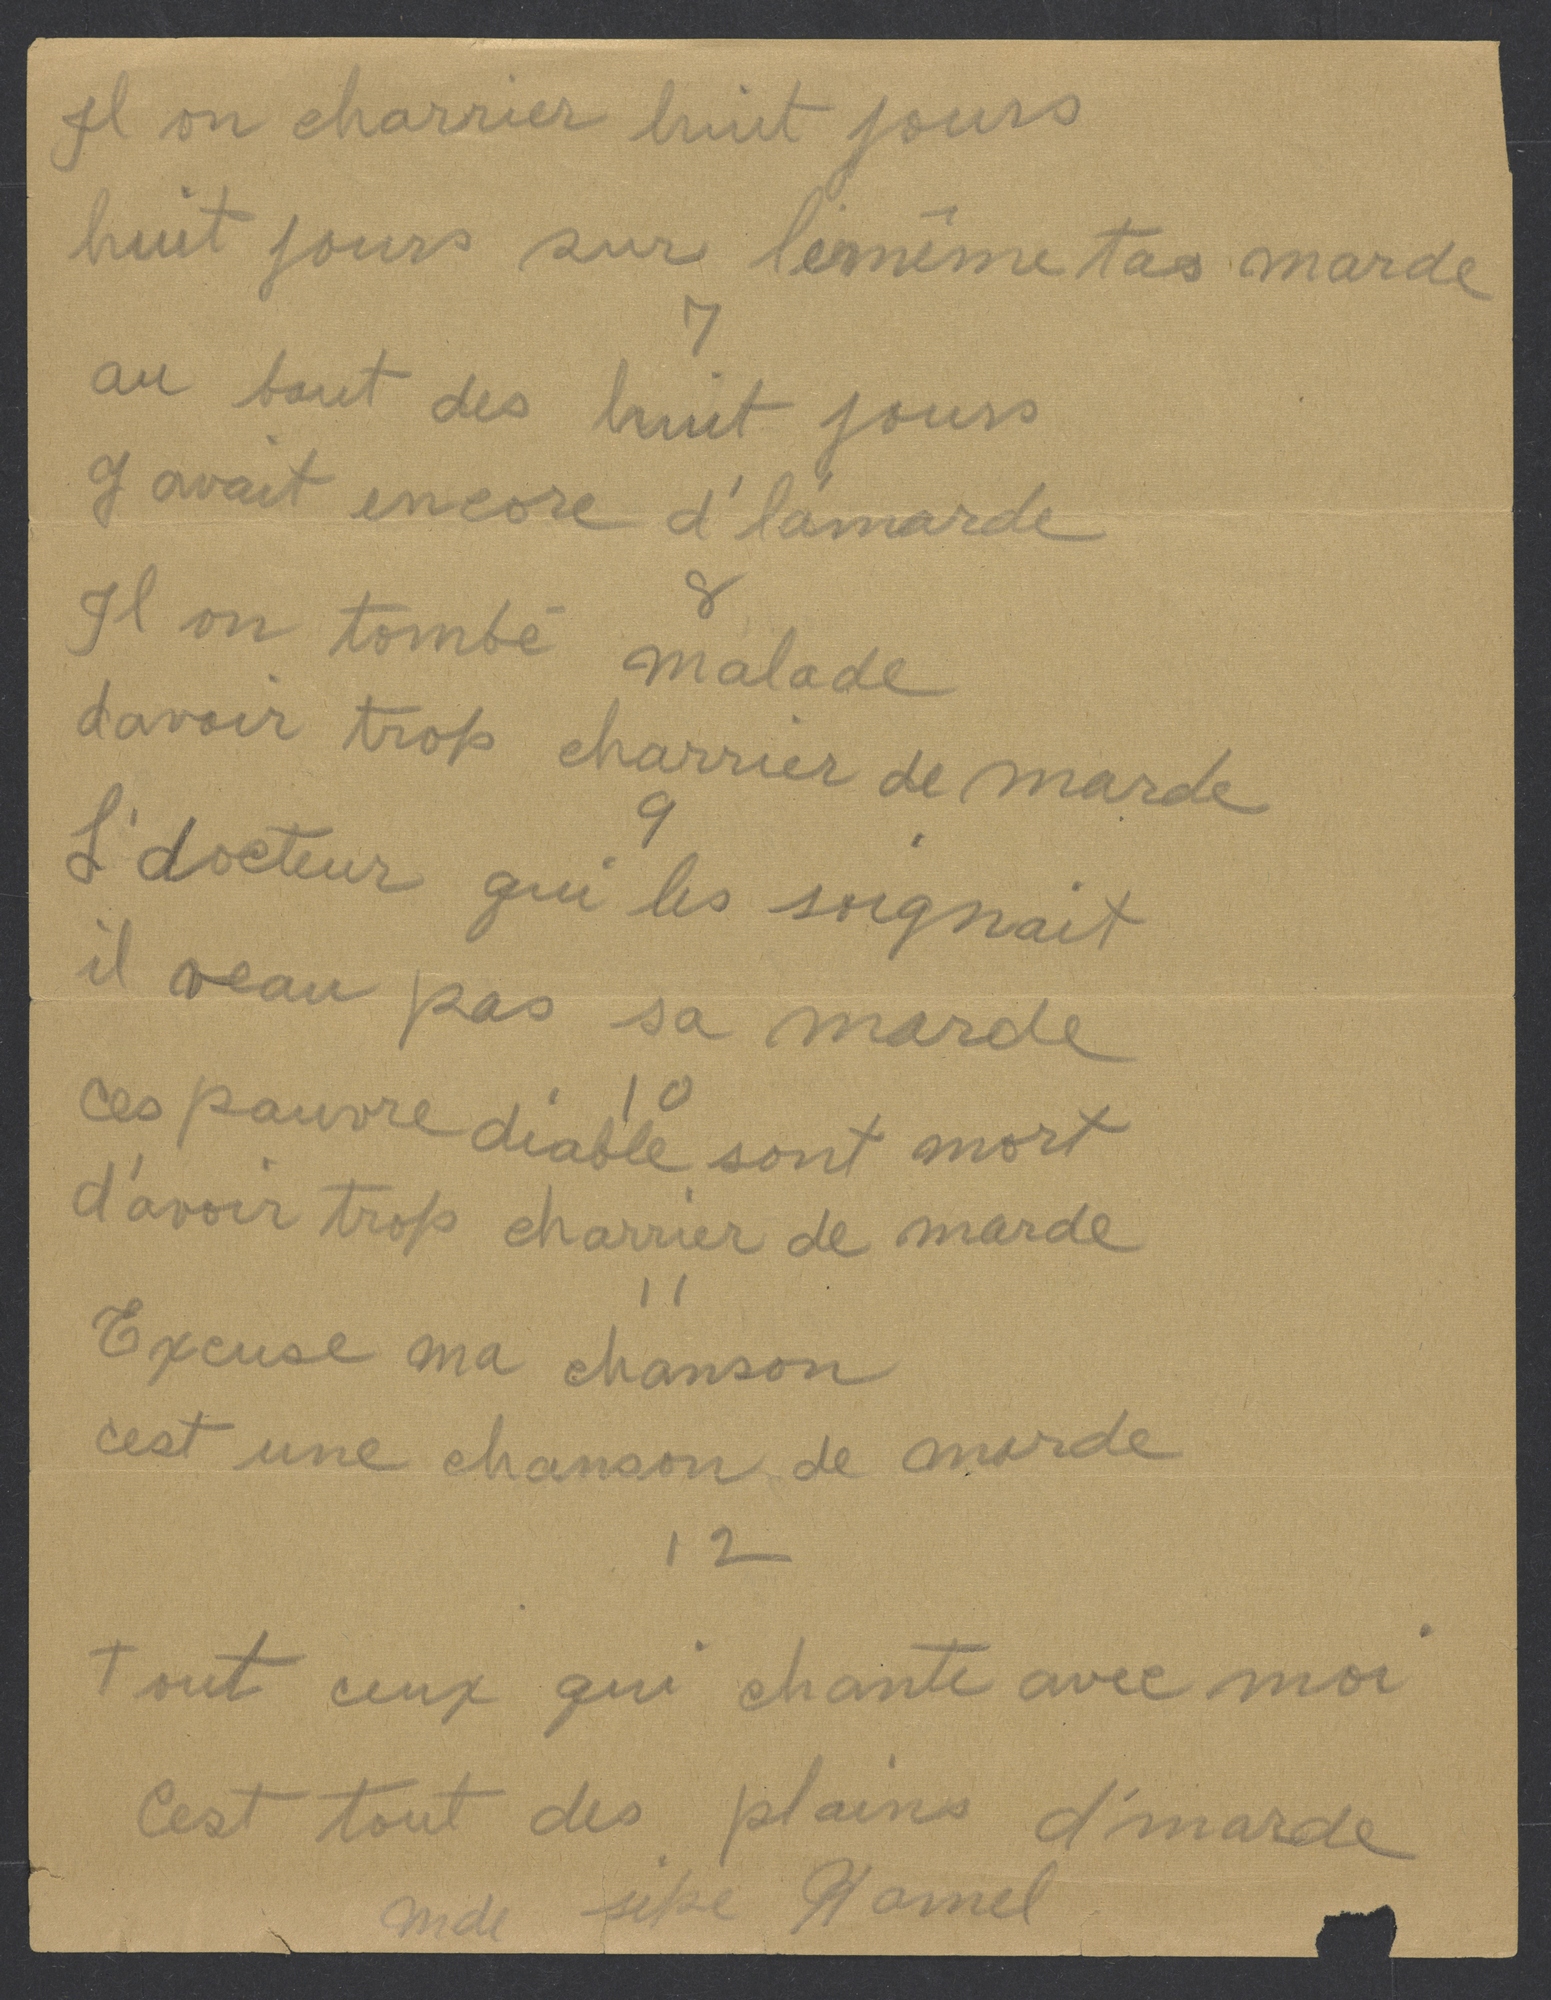 Il on charrier huit jours
huit jours sur le même tas marde
7
au bout des huit jours
Y avait encore d'la marde
8
Il on tombé malade
davoir trop charrier de marde
9
L'docteur qui les soignait
il veau pas sa marde
10
ces pauvre diable sont mort
d'avoir trop charrier de marde
11
Excuse ma chanson
cest une chanson de marde
12
Tout ceux qui chante avec moi
Cest tout des plains d'marde
Mde Hamel